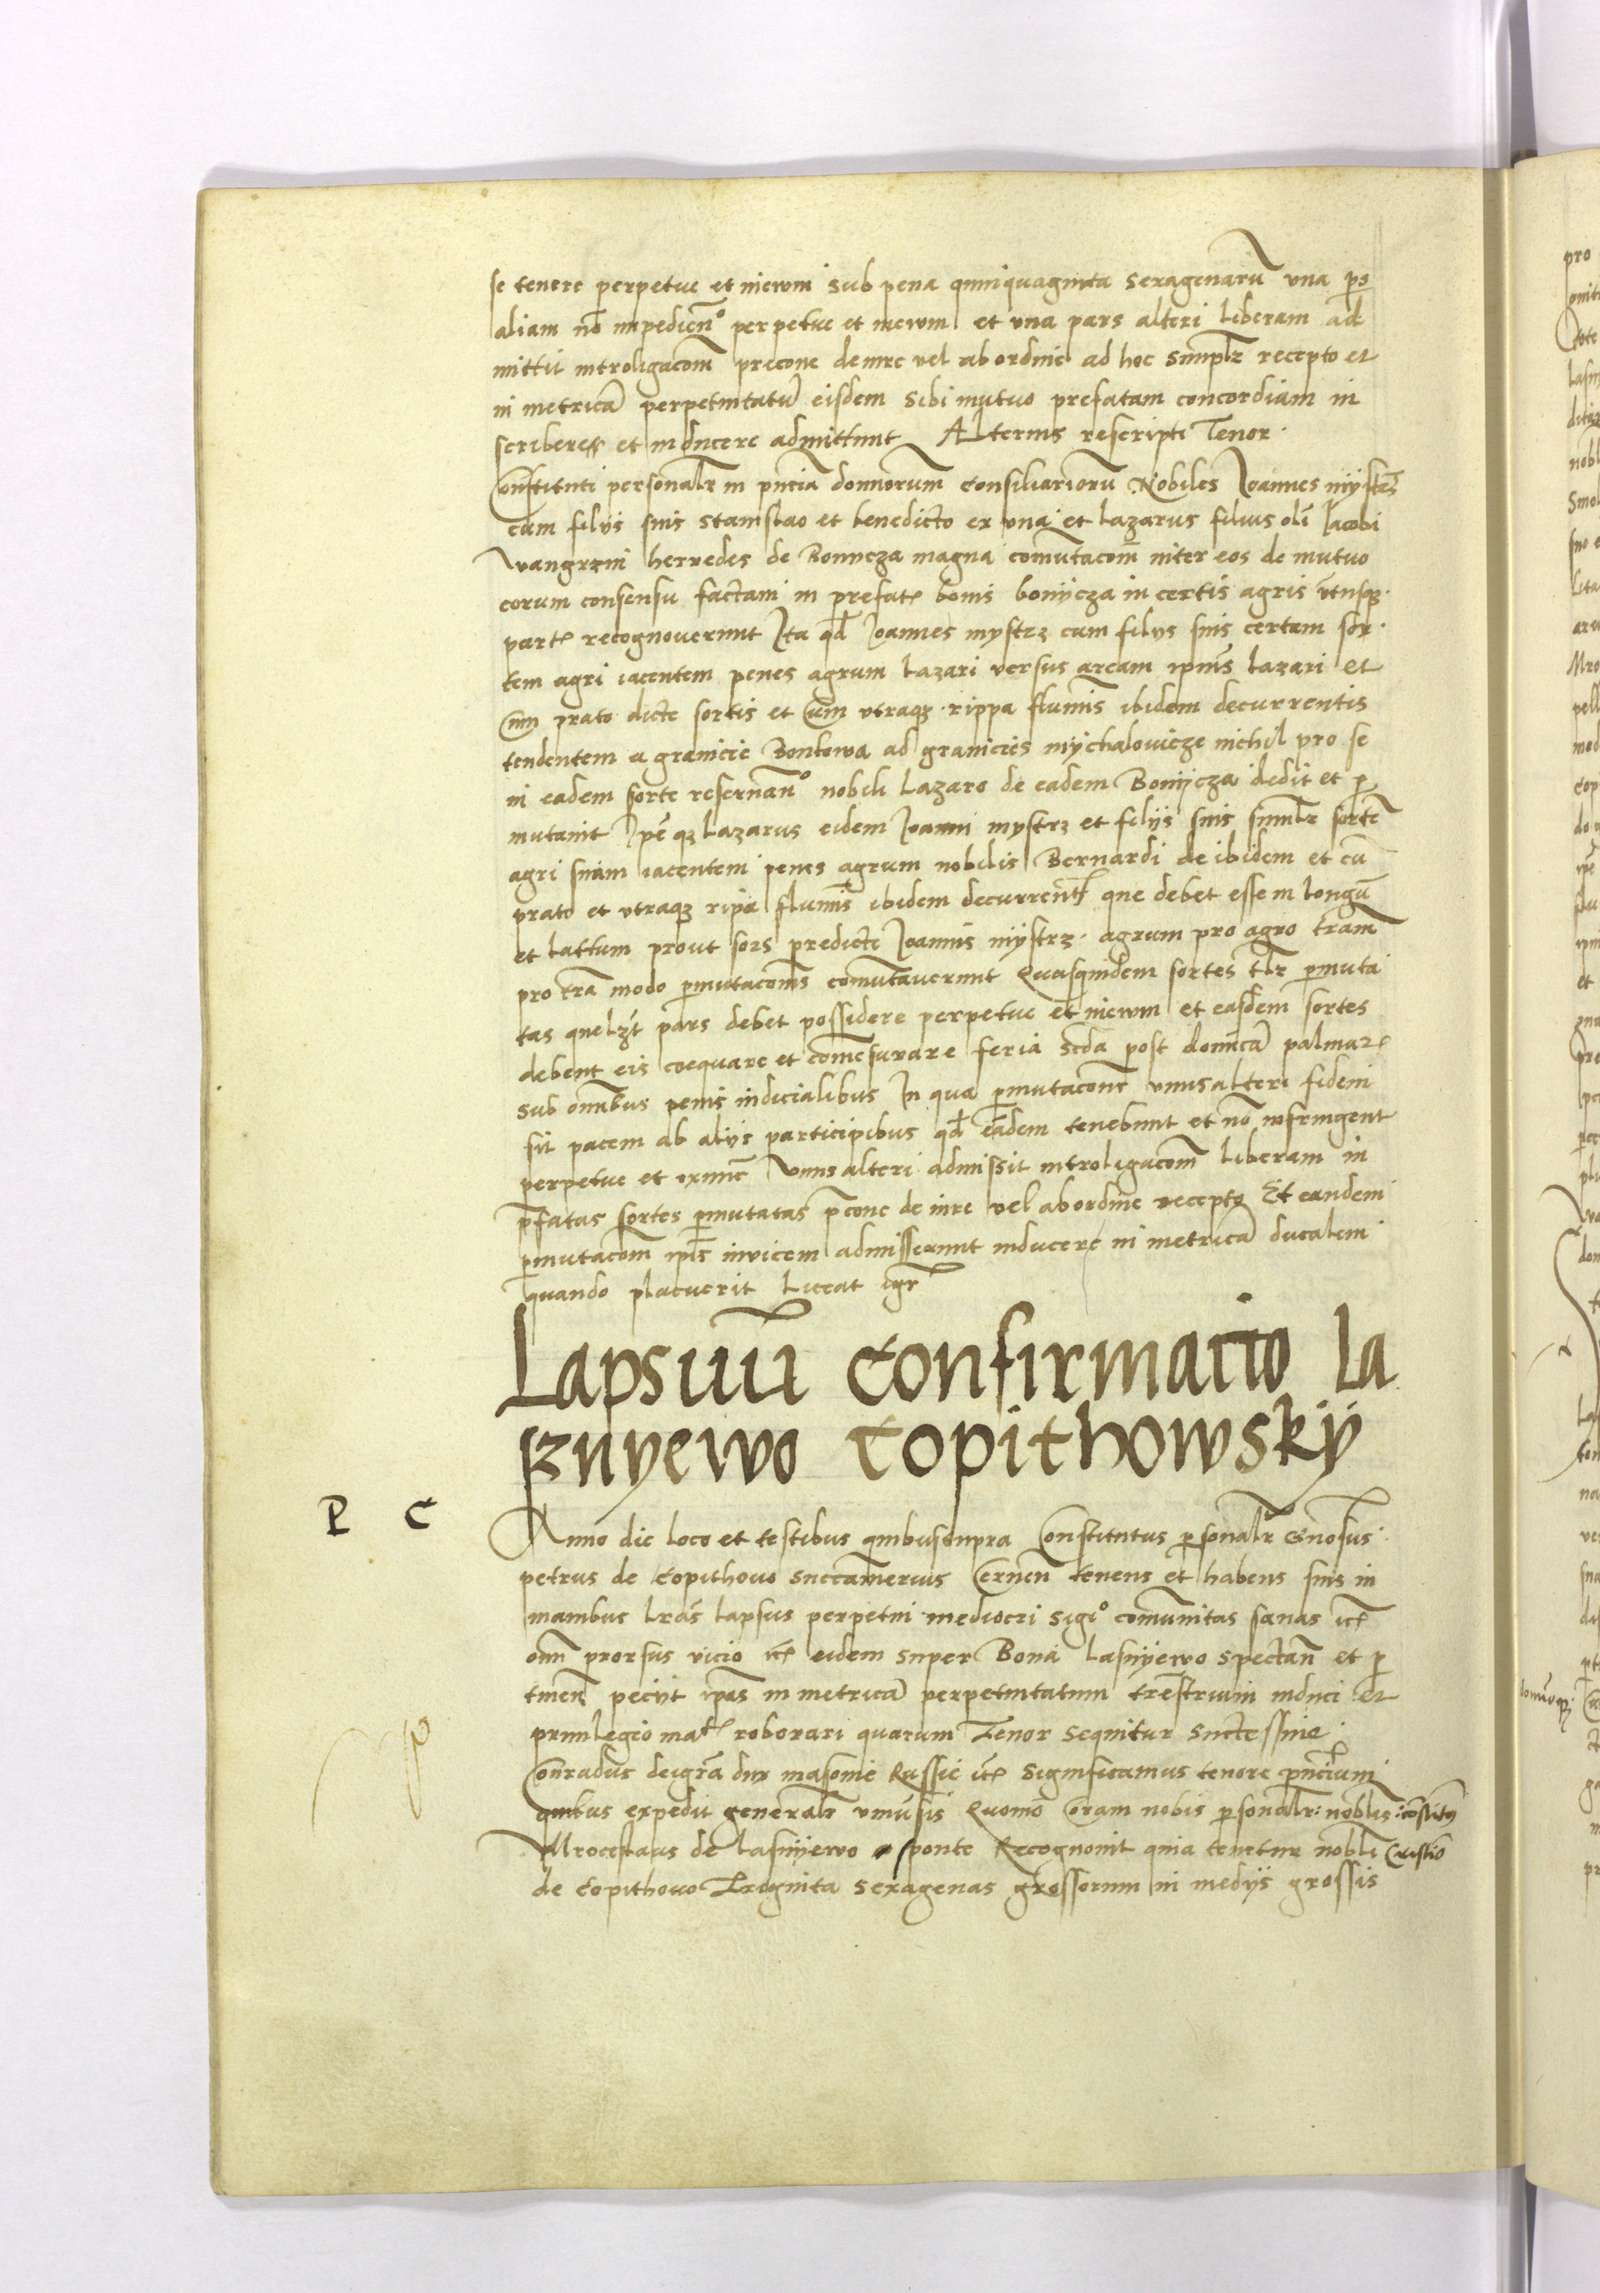 se tenere perpetue et in ewm sub pena quinquaginta sexagenarū una ps
aliam nō impedien̄º perpetue et in ewm et una pars alteri liberam ad
mittit introligacōm precone de iure vel ab ordine ad hoc simplr recepto et
in metricā perpetuitatū eisdem sibi mutuo prefatam concordiam in
scribere et inducere admittunt Alterius rescripti Tenor
Constituti personalr in pn̄cia dominorum consiliariorū Nobiles Joannes mystrz
cum filijs suis stanislao et benedicto ex una et lazarus filius oli Jacobi
wangrzin heredes de Bonycza magna comutacōm inter eos de mutuo
eorum consensu factam in prefatꝭ bonis bonijcza in certis agris utriusqꝫ
partꝭ recognoverunt Ita qd Joannes mystrz cum filijs suis certam sor
tem agri iacentem penes agrum lazari versus aream ipius lazari et
cum prato dicte sortis et cum utraqꝫ rippa fluminis ibidem decurrentis
tendentem a granicie Bonkowa ad granicies mijchalowicze nichil pro se
in eadem sorte reservan̄º nobili lazaro de eadem Bonijcza dedit et p
mutavit Ipē qꝫ lazarus eidem Joanni mystrz et filijs suis similr sortē
agri suam iacentem penes agrum nobilis Bernardi de ibidem et cū
prato et utraqꝫ ripa fluminis ibidem decurrentꝭ que debet esse in longū
et lattum prout sors predicti Joannis mystrz agrum pro agro tram
pro tra modo pmutacoīs comutaverunt Quasquidem sortes tlr pmuta
tas quelzt pars debet possidere perpetue et in ewm et easdem sortes
debent eis coequare et comesurare feria scda post dominicā palmarꝭ
sub omībus penis iudicialibus In qua pmutacone unus alteri fidem
fit pacem ab alijs participibus qd eadem tenebunt et nō infringent
perpetue et ex nunc Unus alteri admissit introligacōm liberam in
pfatas sortes pmutatas pcone de iure vel ab ordine recepto Et eandem
pmutacōm ipīs invicem admisserunt inducere in metricā ducalem
quando placuerit liceat igr
Lapsuum Confirmatio La
znyewo Copithowskij
P C
Anno die loco et testibus quibus supra Constitutus psonalr Gnosus
petrus de Copithowo succamerius Cernen̄ tenens et habens suis in
manibus lras lapsus perpetui mediocri sigº comunitas sanas itꝭ
omī prorsus vicio itꝭ eidem super Bona lasnijewo spectan̄ et p
tinen̄ pecijt ipas in metricā perpetuitatum trestrium induci et
privilegio matꝭ roborari quarum Tenor sequitur successive
Conradus dei gra dux masovie Russie itꝭ significamus tenore pn̄cium
quibus expedit generalr universis Quomō coram nobis psonalr: nobilis: constitus
Mroceslaus de lasnijewo sponte Recognovit quia tenetur nobli Cristino
de Copithowo Triginta sexagenas grossorum in medijs grossis